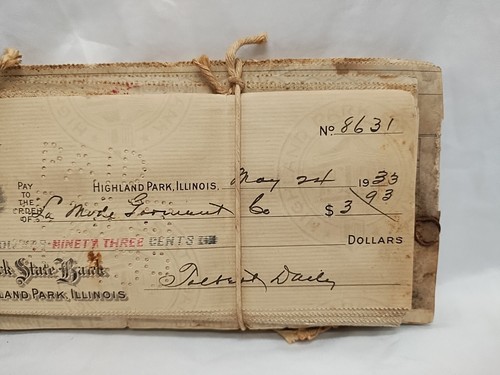 No. 8631
HIGHLAND PARK, ILLINOIS, May 24 1933
PAY TO THE ORDER OF La Mode Garment Co $3 93
NINETY THREE CENTS DOLLARS
State Bank
HIGHLAND PARK, ILLINOIS. Daily